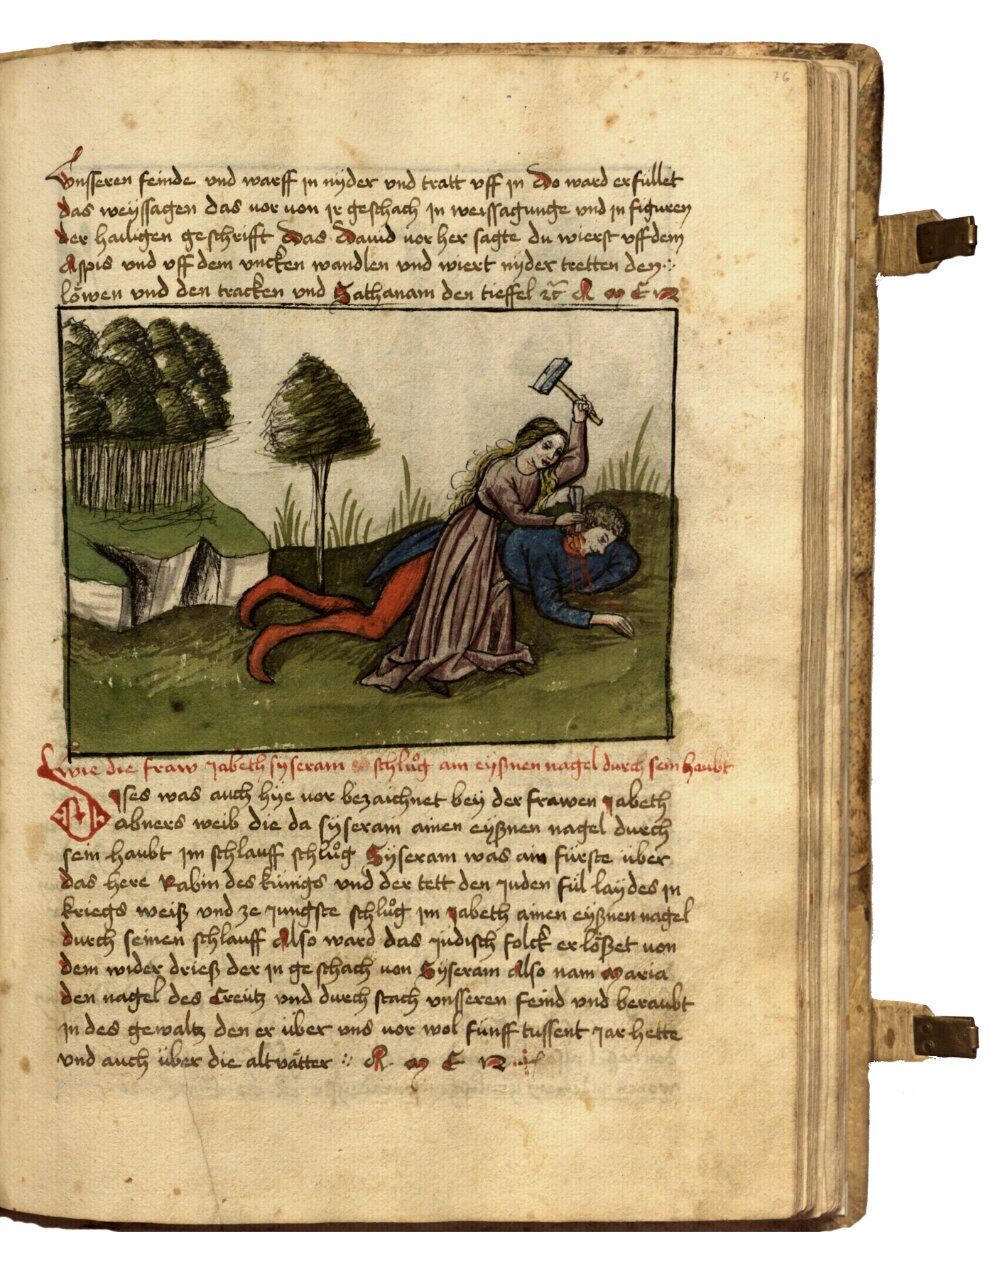 76
unsseren feinde und warff in nyder und tratt uff in Do ward erfüllet
das weyssagen das vor von ir geschach in weissagunge und in figuren
der hailigen geschrifft Das David vor her sagte du wierst uff dem
Aspis und uff dem uncken wandlen und wiert nyder tretten den
löwen und den tracken und Sathanam den tieffel etc A M E N
wie die fraw Jabeth syseram schlůg ain eyßnen nagel durch sein haubt
Dises was auch hye vor bezaichnet bey der frawen Jabeth
abners weib die da syseram ainen eyßnen nagel durch
sein haubt im schlauff schlůg Syseram was ain fürste über
das here Rabin des künigs und der tett den juden fül laydes in
kriegs weiß und ze jungste schlůg im Jabeth ainen eyßnen nagel
durch seinen schlauff Also ward das jüdisch folck erlößet von
dem wider drieß der in geschach von Syseram Also nam Maria
den nagel des Creütz und durch stach unsseren feind und beraubt
in des gewaltz den er über uns vor wol fünff tussent jar hette
und auch über die altvätter A M E N